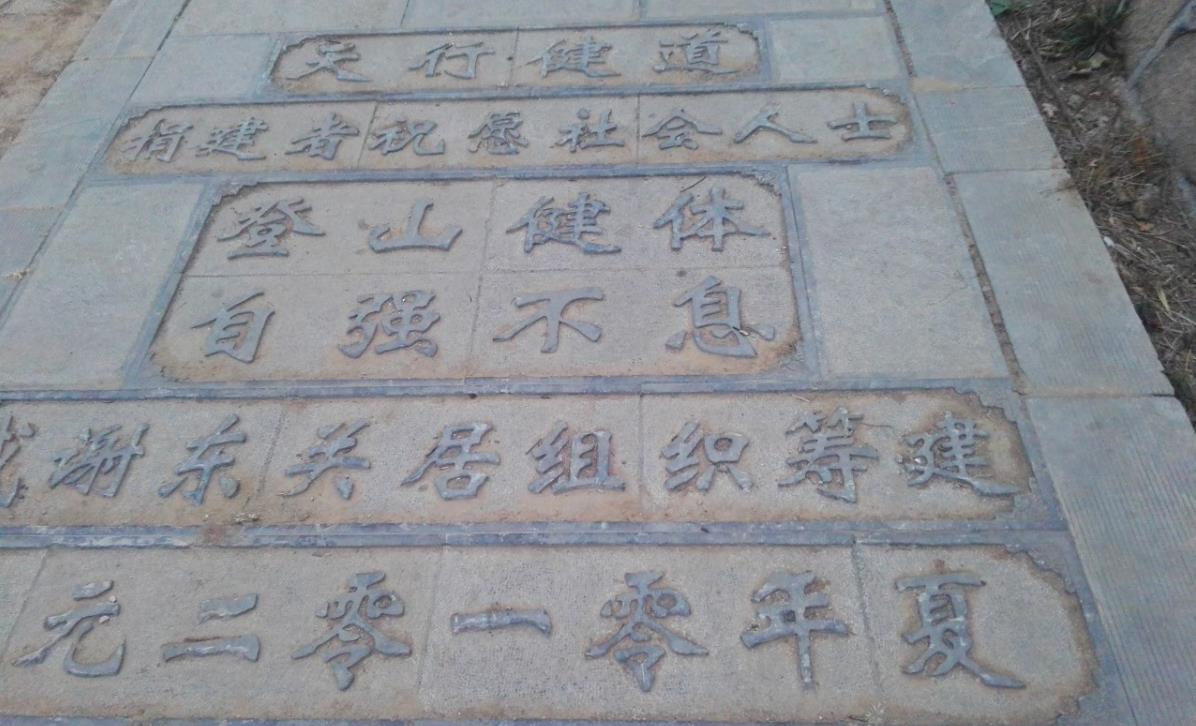 天行健道
捐建者祝愿社会人士
登山健体
自强不息
谢东关居组织筹建
元二零一零年夏